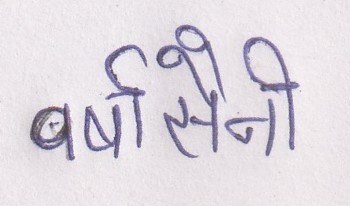 वर्षा सैनी